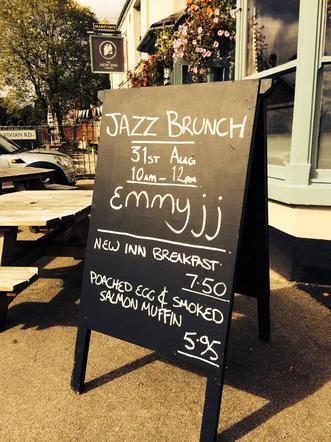 MARSTON'S
NEW INN
VIVIAN RD.
JAZZ BRUNCH
31ST AUG
10AM - 12AM
Emmy jj
NEW INN BREAKFAST
7.50
POACHED EGG & SMOKED
SALMON MUFFIN
5.95